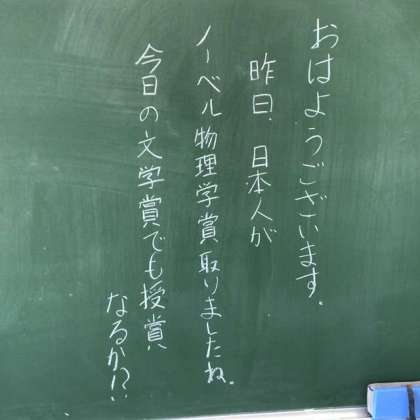 おはようございます。
昨日、日本人が
ノーベル物理学賞取りましたね。
今日の文学賞でも授賞
なるか!?